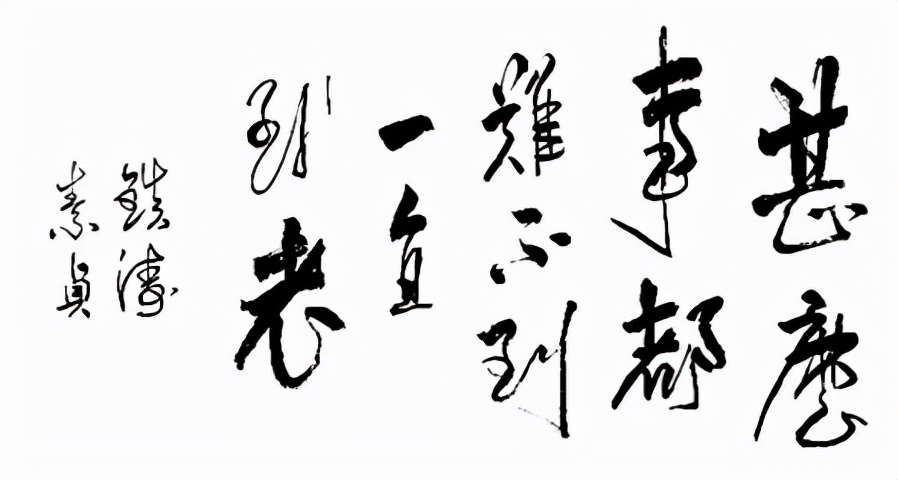 甚麼
事都
難不到
一直
到老
鐵濤
素貞